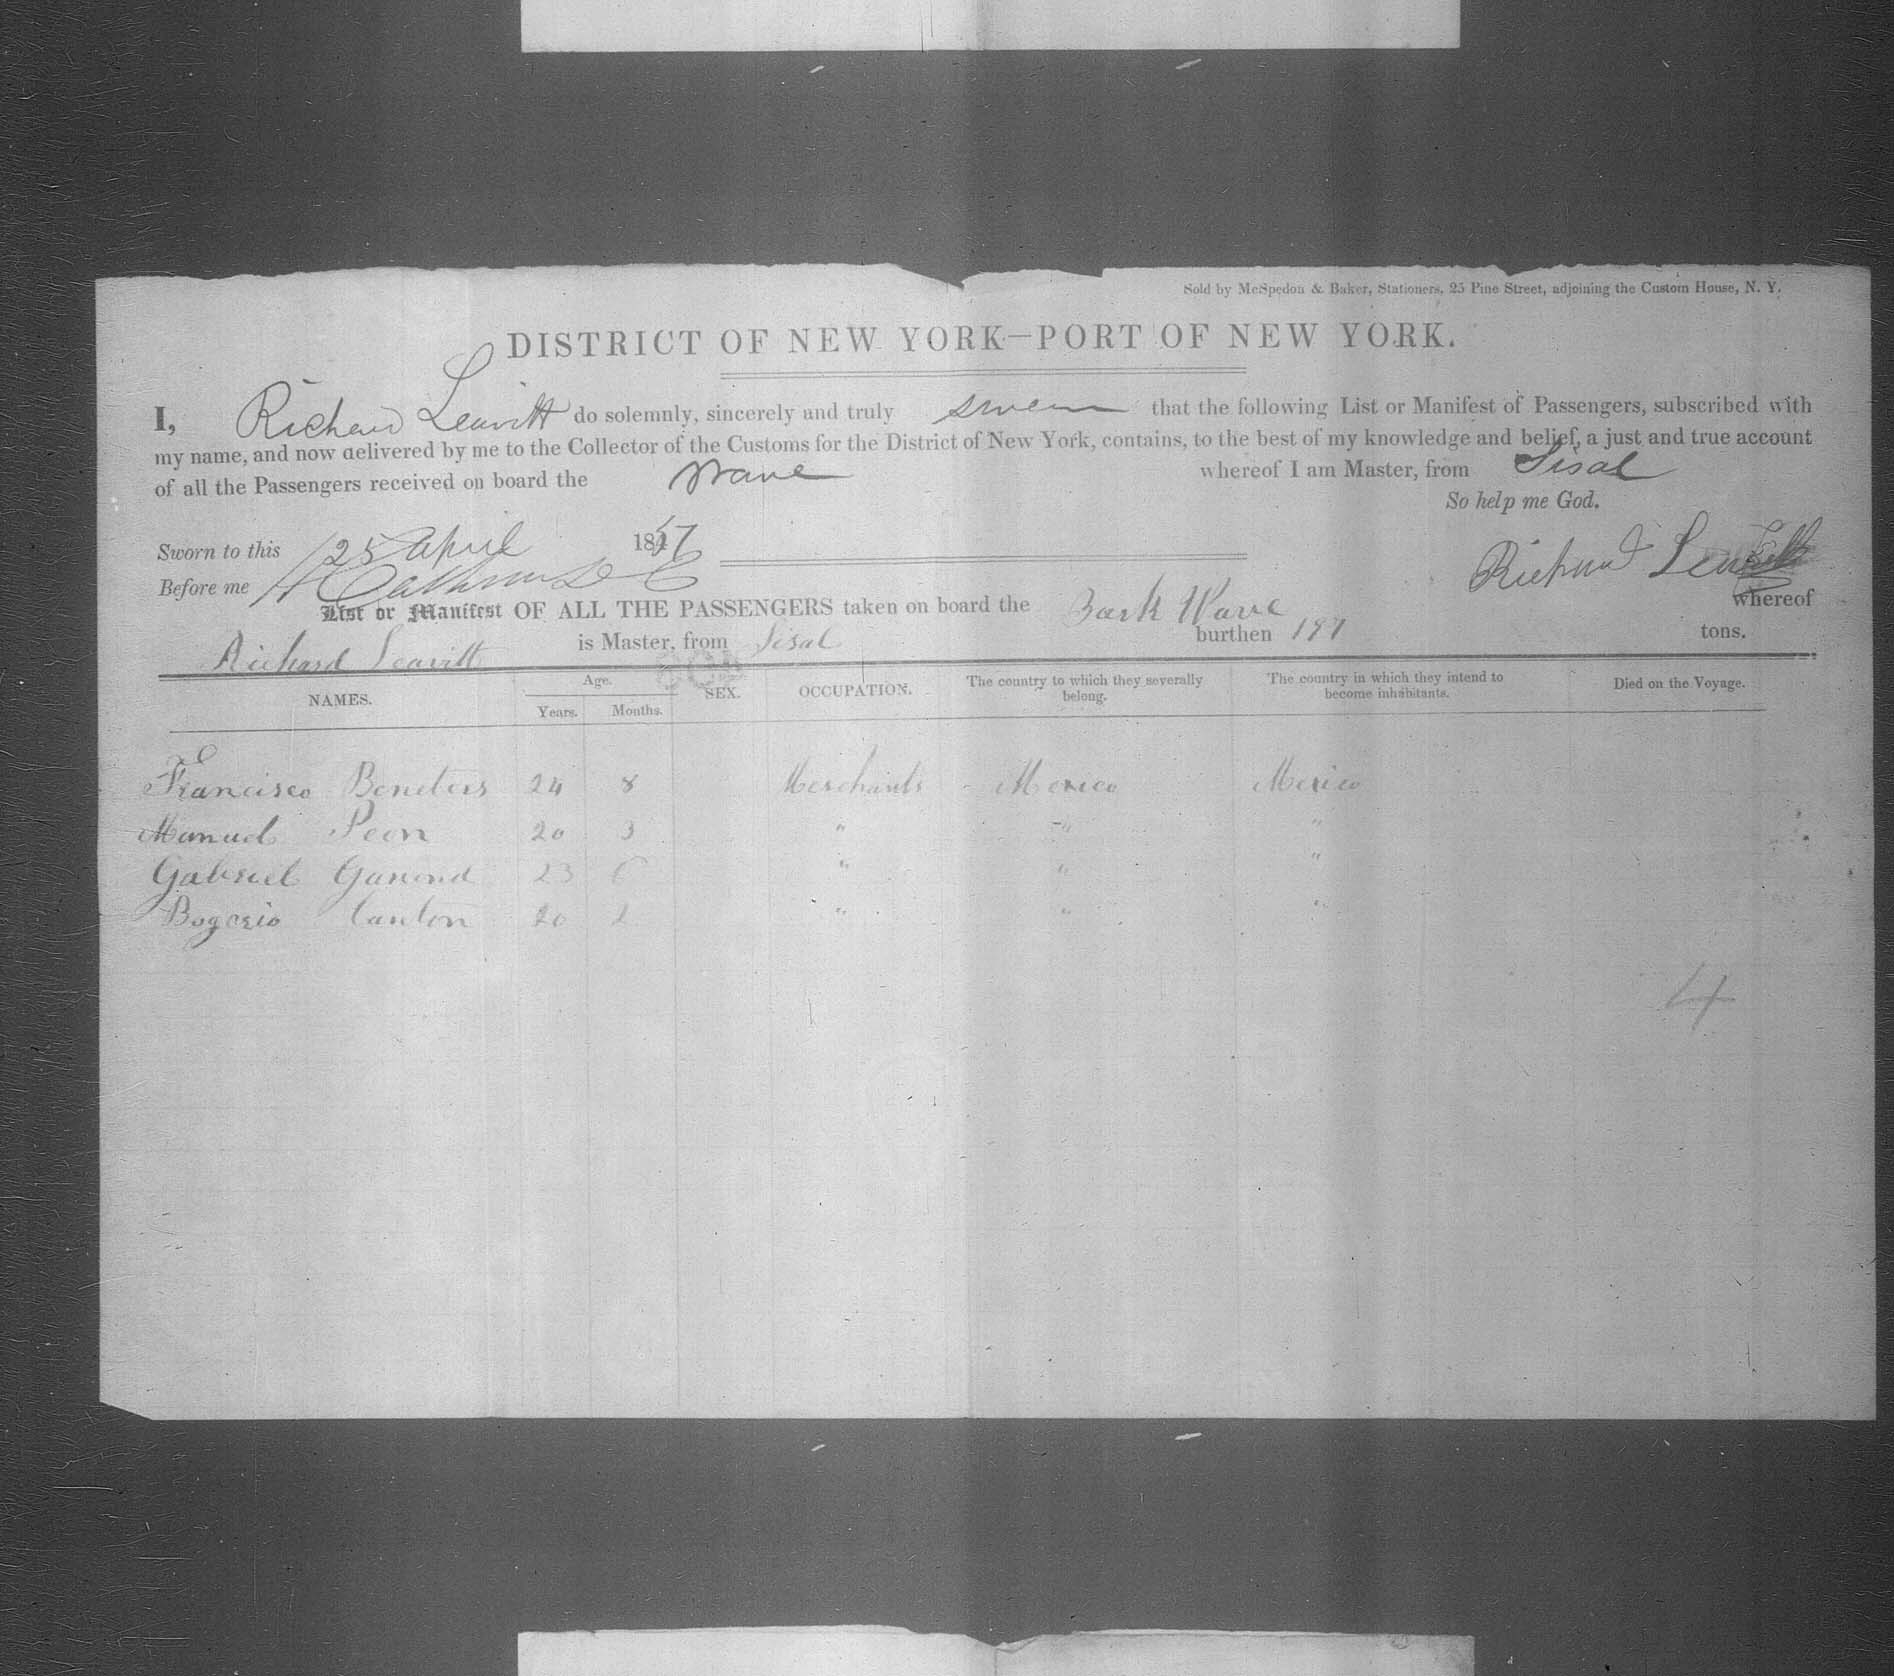 Sold by McSpedon & Baker, Stationers, 25 Pine Street, adjoining the Custom House, N. Y.
DISTRICT OF NEW YORK—PORT OF NEW YORK.
I, Richard Leavitt do solemnly, sincerely and truly swear that the following List or Manifest of Passengers, subscribed with
my name, and now delivered by me to the Collector of the Customs for the District of New York, contains, to the best of my knowledge and belief, a just and true account
of all the Passengers received on board the Wave whereof I am Master, from Sisal
So help me God.
Sworn to this 25 April 1857
Before me
Richard Leavitt
List or Manifest OF ALL THE PASSENGERS taken on board the Bark Wave whereof
Richard Leavitt is Master, from Sisal burthen 197 tons.
NAMES. Age. Years. Months. SEX. OCCUPATION. The country to which they severally belong. The country in which they intend to become inhabitants. Died on the Voyage.
Francisco 24 8 Merchants Mexico Mexico
Manuel Peon 20 3 " " "
Gabriel 23 6 " " "
Bogerio Canton 20 2 " " "
4